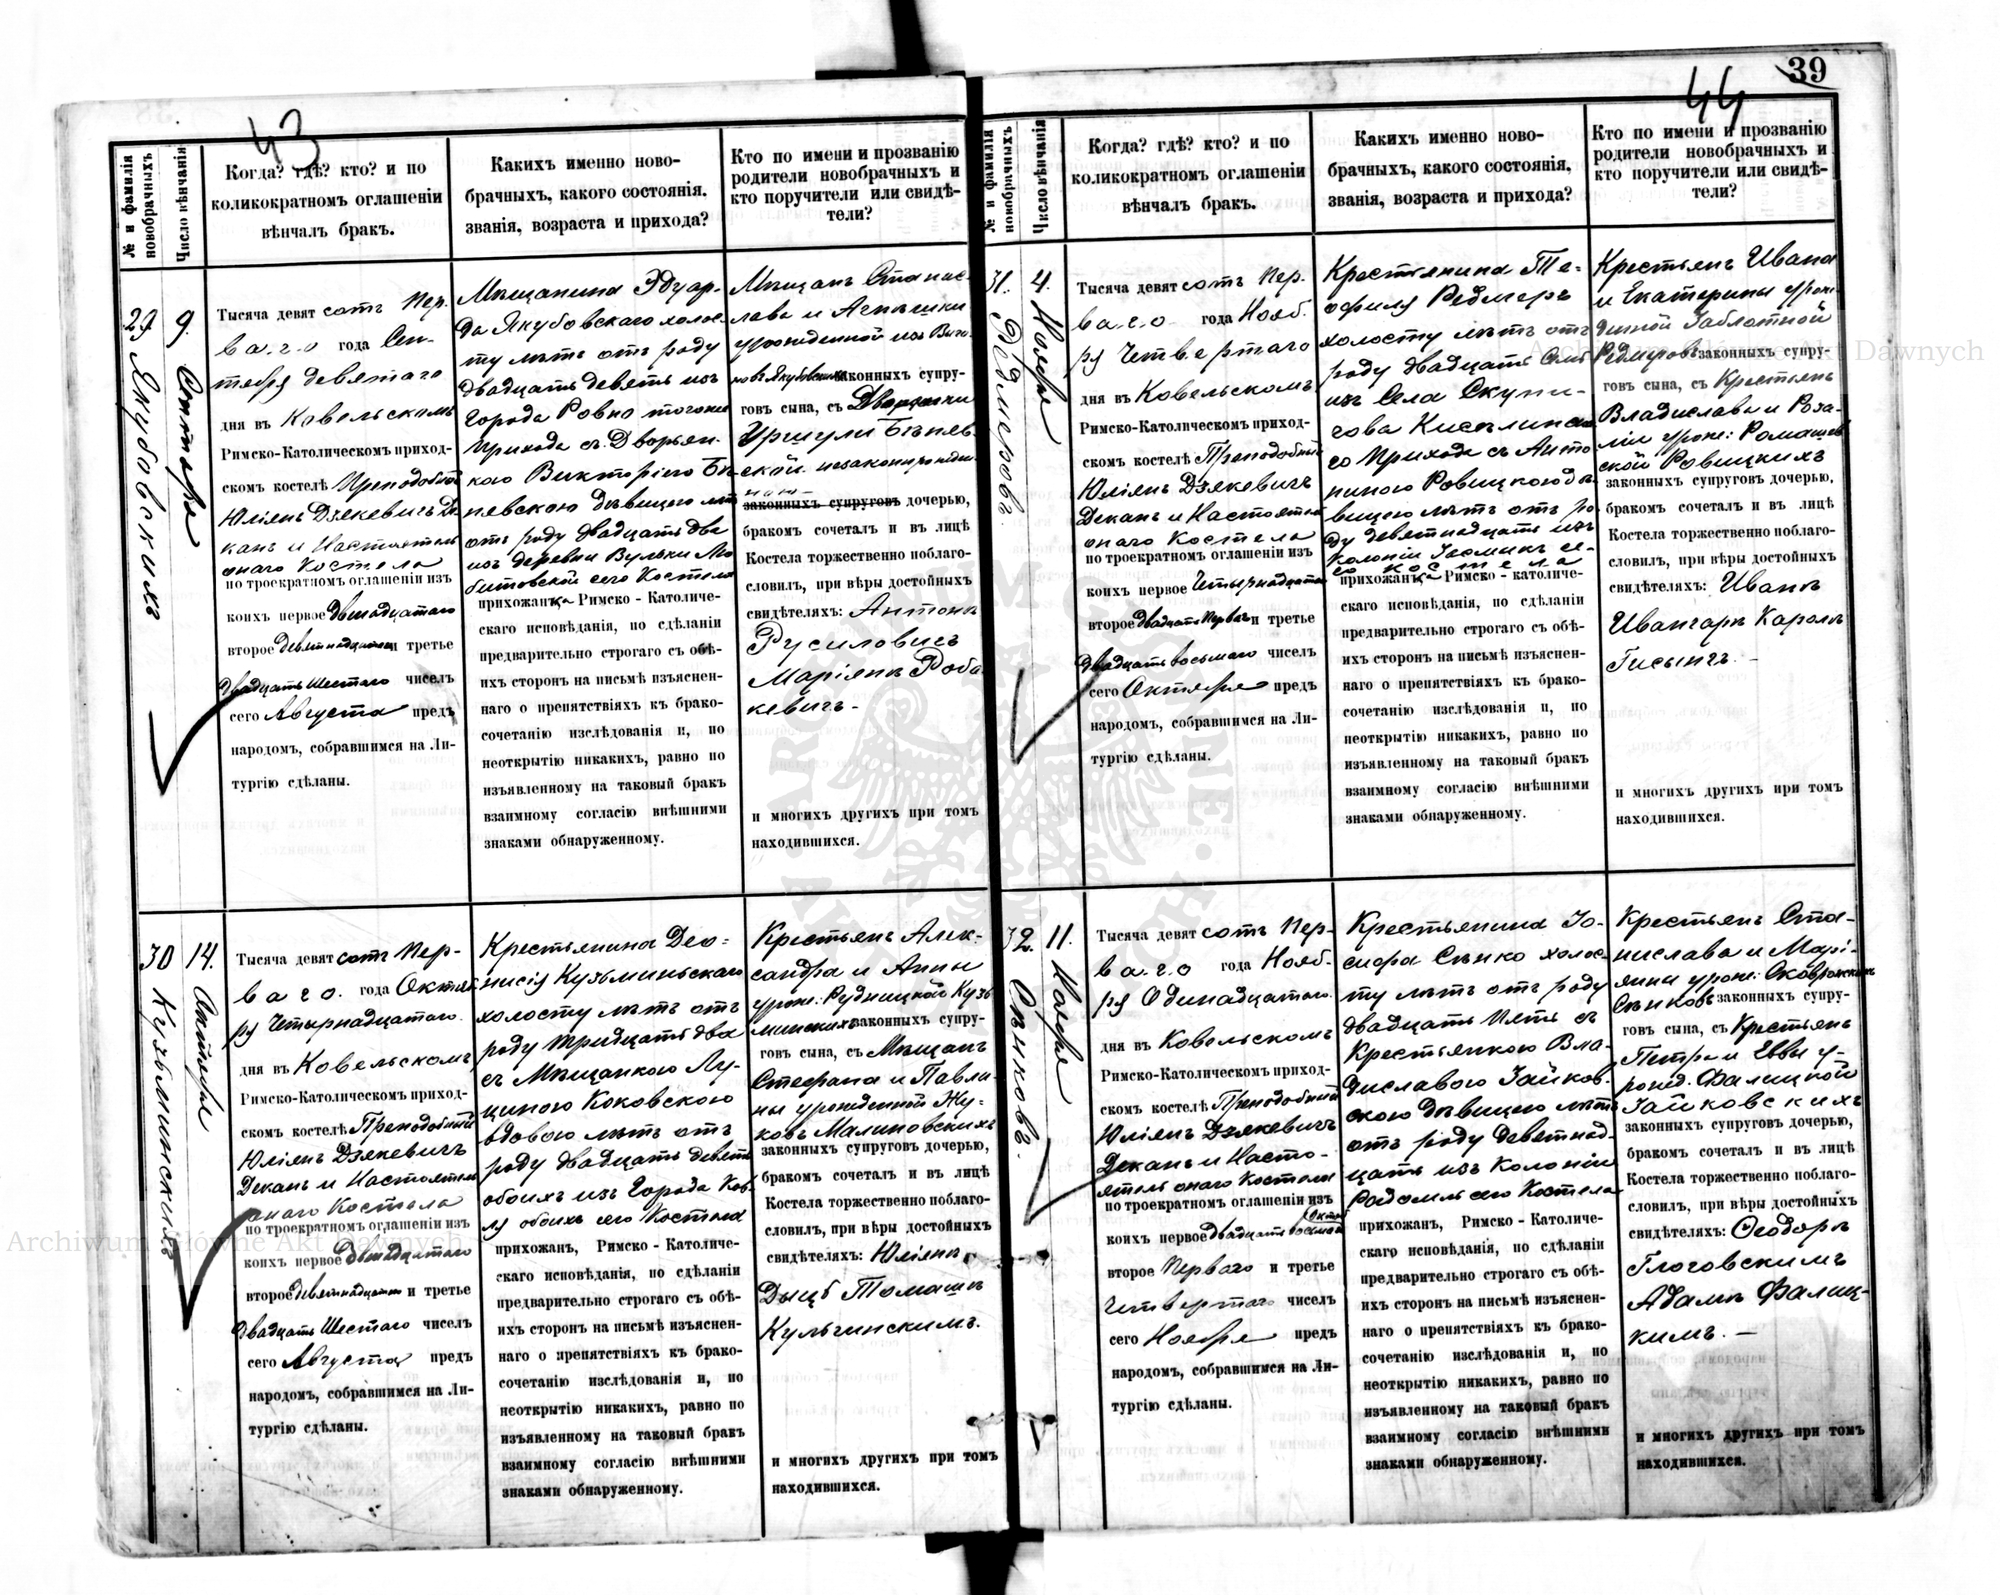 43
№ и фамилія новобрачныхъ
Число вѣнчанія
Когда? гдѣ? кто? и по
коликократномъ оглашеніи
вѣнчалъ бракъ.
Какихъ именно ново-
брачныхъ, какого состоянія,
званія, возраста и прихода?
Кто по имени и прозванію
родители новобрачныхъ и
кто поручители или свидѣ-
тели?
29
Якубовскихъ
9.
Сентября
Тысяча девят сотъ пер-
ваго года Сен-
тября девятаго
дня въ Ковельскомъ
Римско-Католическомъ приход-
скомъ костелѣ Преподобный
Юліянъ Дзякевичъ Де-
канъ и Настоятель
онаго Костела
по троекратномъ оглашеніи изъ
коихъ первое двенадцатаго
второе девятнадцатаго и третье
двадцать шестаго чиселъ
сего Августа предъ
народомъ, собравшимся на Ли-
тургію сдѣланы.
Мѣщанина Эдуар-
да Якубовскаго холос-
ту лѣтъ отъ роду
двадцать девять изъ
Города Ровно тогоже
прихода съ Дворян-
кою Викторіею Бѣ-
невскою дѣвицею лѣтъ
отъ роду двадцать два
изъ деревни Вульки
сего Костела
прихожанъ Римско - Католиче-
скаго исповѣданія, по сдѣланіи
предварительно строгаго съ обѣ-
ихъ сторонъ на письмѣ изъяснен-
наго о препятствіяхъ къ брако-
сочетанію изслѣдованія и, по
неоткрытію никакихъ, равно по
изъявленному на таковый бракъ
взаимному согласію внѣшними
знаками обнаруженному.
Мѣщанъ Станис-
лава и Агнѣшки
урожденной изъ
Якубовскихъ законныхъ супру-
говъ сына, съ Дворянки
Уршули Бѣнев-
ской незаконнорожден-
ною
законныхъ супруговъ дочерью,
бракомъ сочеталъ и въ лицѣ
Костела торжественно поблаго-
словилъ, при вѣры достойныхъ
свидѣтеляхъ: Антонъ
Русиловичъ
Маріянъ
кевичъ -
и многихъ другихъ при томъ
находившихся.
30
Кузьминскихъ
14.
Октября
Тысяча девят сотъ пер-
ваго. года Октяб-
ря Четырнадцатаго
дня въ Ковельскомъ
Римско-Католическомъ приход-
скомъ костелѣ Преподобный
Юліянъ Дзякевичъ
Деканъ и Настоятель
онаго Костела
по троекратномъ оглашеніи изъ
коихъ первое двенадцатаго
второе девятнадцатаго и третье
двадцать шестаго чиселъ
сего Августа предъ
народомъ, собравшимся на Ли-
тургію сдѣланы.
Крестьянина Део-
нисія Кузьминьскаго
холосту лѣтъ отъ
роду тридцать два
съ Мѣщанкою Лу-
циною Коковскою
вдовою лѣтъ отъ
роду двадцать девять
обоихъ изъ Города Ков-
ля обоихъ сего Костела
прихожанъ, Римско - Католиче-
скаго исповѣданія, по сдѣланіи
предварительно строгаго съ обѣ-
ихъ сторонъ на письмѣ изъяснен-
наго о препятствіяхъ къ брако-
сочетанію изслѣдованія и, по
неоткрытію никакихъ, равно по
изъявленному на таковый бракъ
взаимному согласію внѣшними
знаками обнаруженному.
Крестьянъ Алек-
сандра и Анны
урож: Рудницкой Кузь-
минскихъ законныхъ супру-
говъ сына, съ Мѣщанъ
Стефана и Павли-
ны урожденной Жу-
ковъ Малиновскихъ
законныхъ супруговъ дочерью,
бракомъ сочеталъ и въ лицѣ
Костела торжественно поблаго-
словилъ, при вѣры достойныхъ
свидѣтеляхъ: Юліянъ
Томашъ
Кульчинскимъ.
и многихъ другихъ при томъ
находившихся.
39
44
№ и фамилія новобрачныхъ
Число вѣнчанія
Когда? гдѣ? кто? и по
коликократномъ оглашеніи
вѣнчалъ бракъ.
Какихъ именно ново-
брачныхъ, какого состоянія,
званія, возраста и прихода?
Кто по имени и прозванію
родители новобрачныхъ и
кто поручители или свидѣ-
тели?
31.
Редмеровъ
4.
Ноября
Тысяча девят сотъ пер-
ваго года Нояб-
ря Четвертаго
дня въ Ковельскомъ
Римско-Католическомъ приход-
скомъ костелѣ Преподобный
Юліянъ Дзякевичъ
Деканъ и Настоятель
онаго Костела
по троекратномъ оглашеніи изъ
коихъ первое Четырнадцатаго
второе двадцать перваго и третье
двадцать восьмаго чиселъ
сего Октября предъ
народомъ, собравшимся на Ли-
тургію сдѣланы.
Крестьянина Те-
офиля Редмеръ
холосту лѣтъ отъ
роду двадцать семь
изъ Села Скупи-
чова Киселинска-
го прихода съ Анто-
ниною Ровицкою дѣ-
вицею лѣтъ отъ ро-
ду девятнадцать изъ
Колоніи Засмыкъ се-
го костела
прихожанъ Римско - католиче-
скаго исповѣданія, по сдѣланіи
предварительно строгаго съ обѣ-
ихъ сторонъ на письмѣ изъяснен-
наго о препятствіяхъ къ брако-
сочетанію изслѣдованія и, по
неоткрытію никакихъ, равно по
изъявленному на таковый бракъ
взаимному согласію внѣшними
знаками обнаруженному.
Крестьянъ Ивана
и Екатерины урож-
денной Заблотной
Редмеровъ законныхъ супру-
говъ сына, съ Крестьянъ
Владислава и Роза-
ліи урож: Ромашев-
ской Ровицкихъ
законныхъ супруговъ дочерью,
бракомъ сочеталъ и въ лицѣ
Костела торжественно поблаго-
словилъ, при вѣры достойныхъ
свидѣтеляхъ: Иванъ
Ивангаръ Кароль
Гисынгъ. -
и многихъ другихъ при томъ
находившихся.
32.
Сѣнковъ.
11.
Ноября
Тысяча девят сотъ пер-
ваго года Нояб-
ря Одинадцатаго
дня въ Ковельскомъ
Римско-Католическомъ приход-
скомъ костелѣ Преподобный
Юліянъ Дзякевичъ
Деканъ и Насто-
ятель онаго Костела
по троекратномъ оглашеніи изъ
Октяб.
коихъ первое двадцать восьмаго
второе перваго и третье
Четвертаго чиселъ
сего Ноября предъ
народомъ, собравшимся на Ли-
тургію сдѣланы.
Крестьянина Іо-
сифа Сѣнко холос-
ту лѣтъ отъ роду
двадцать пять съ
Крестьянкою Вла-
диславою Зайков-
скою дѣвицею лѣтъ
отъ роду девятнад-
цать изъ Колоніи
Радомль сего Костела
прихожанъ, Римско - Католиче-
скаго исповѣданія, по сдѣланіи
предварительно строгаго съ обѣ-
ихъ сторонъ на письмѣ изъяснен-
наго о препятствіяхъ къ брако-
сочетанію изслѣдованія и, по
неоткрытію никакихъ, равно по
изъявленному на таковый бракъ
взаимному согласію внѣшними
знаками обнаруженному.
Крестьянъ Ста-
нислава и Марі-
янны урож: Сковронскихъ
Сѣнковъ законныхъ супру-
говъ сына, съ Крестьянъ
Петра и Еввы у-
рожд. Фалицкой
Зайковскихъ
законныхъ супруговъ дочерью,
бракомъ сочеталъ и въ лицѣ
Костела торжественно поблаго-
словилъ, при вѣры достойныхъ
свидѣтеляхъ: Ѳеодоръ
Глоговскимъ
Адамъ Фалиц-
кимъ. -
и многихъ другихъ при томъ
находившихся.
Archiwum Główne Akt Dawnych
Archiwum Główne Akt Dawnych
ARCHIWUM GŁÓWNE AKT DAWNYCH